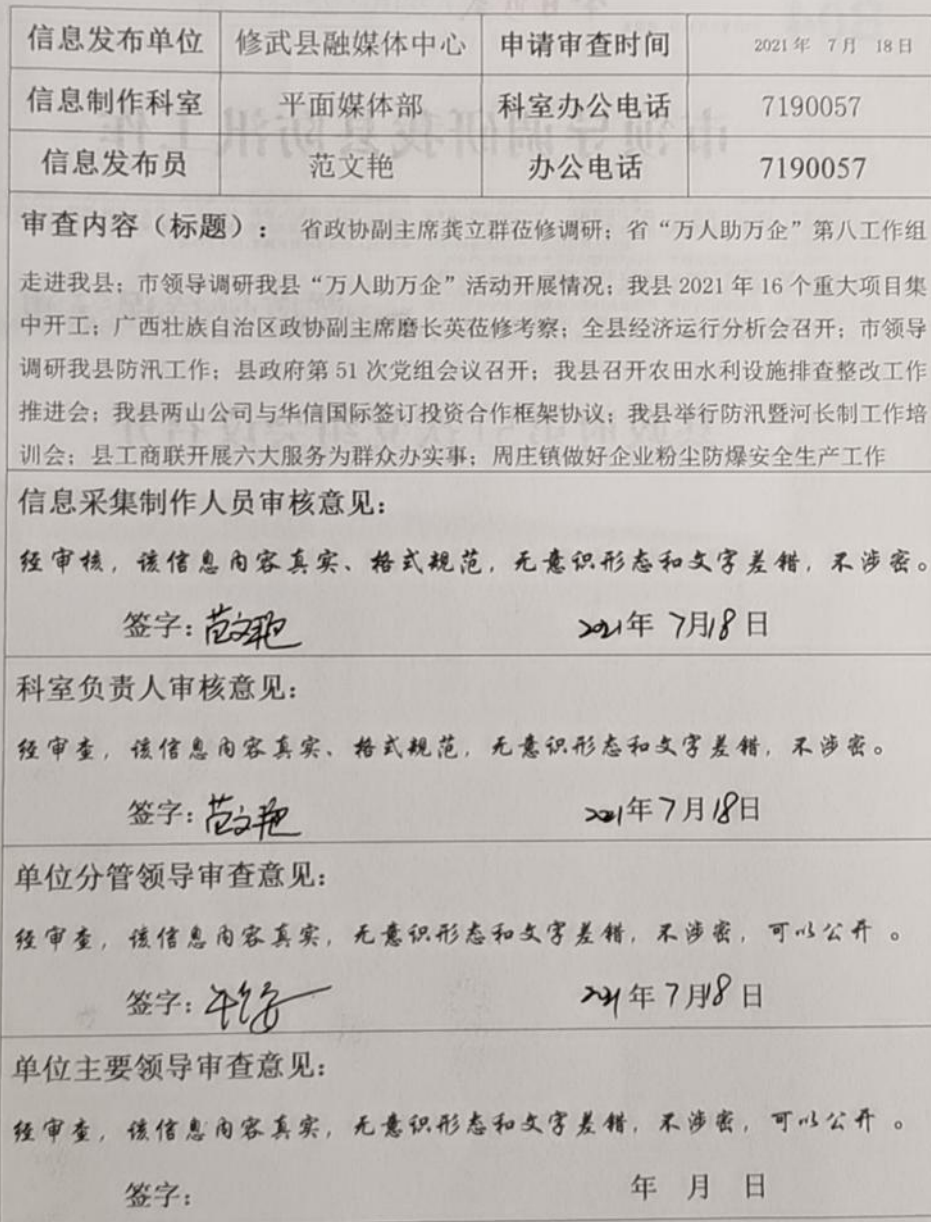 信息发布单位 修武县融媒体中心 申请审查时间 2021年 7月 18日
信息制作科室 平面媒体部 科室办公电话 7190057
信息发布员 范文艳 办公电话 7190057
审查内容（标题）： 省政协副主席龚立群莅修调研；省“万人助万企”第八工作组
走进我县；市领导调研我县“万人助万企”活动开展情况；我县2021年16个重大项目集
中开工；广西壮族自治区政协副主席磨长英莅修考察；全县经济运行分析会召开；市领导
调研我县防汛工作；县政府第51次党组会议召开；我县召开农田水利设施排查整改工作
推进会；我县两山公司与华信国际签订投资合作框架协议；我县举行防汛暨河长制工作培
训会；县工商联开展六大服务为群众办实事；周庄镇做好企业粉尘防爆安全生产工作
信息采集制作人员审核意见：
经审核，该信息内容真实、格式规范，无意识形态和文字差错，不涉密。
签字：范文艳 2021年7月18日
科室负责人审核意见：
经审查，该信息内容真实、格式规范，无意识形态和文字差错，不涉密。
签字：范文艳 2021年7月18日
单位分管领导审查意见：
经审查，该信息内容真实，无意识形态和文字差错，不涉密，可以公开。
签字： 2021年7月18日
单位主要领导审查意见：
经审查，该信息内容真实，无意识形态和文字差错，不涉密，可以公开。
签字： 年 月 日